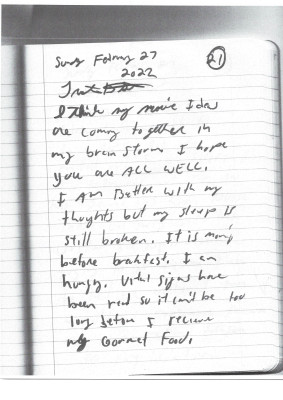 Sunday Februay 27
21
2022
I think my movie Idea
are coming together in
my brain storm I hope
you are ALL WELL.
I Am Better with my
thoughts but my sleep is
still broken. It is
before breakfast. I am
hungry. Vital signs have
been read so it can't be too
long before I recieve
my Gourmet Food.